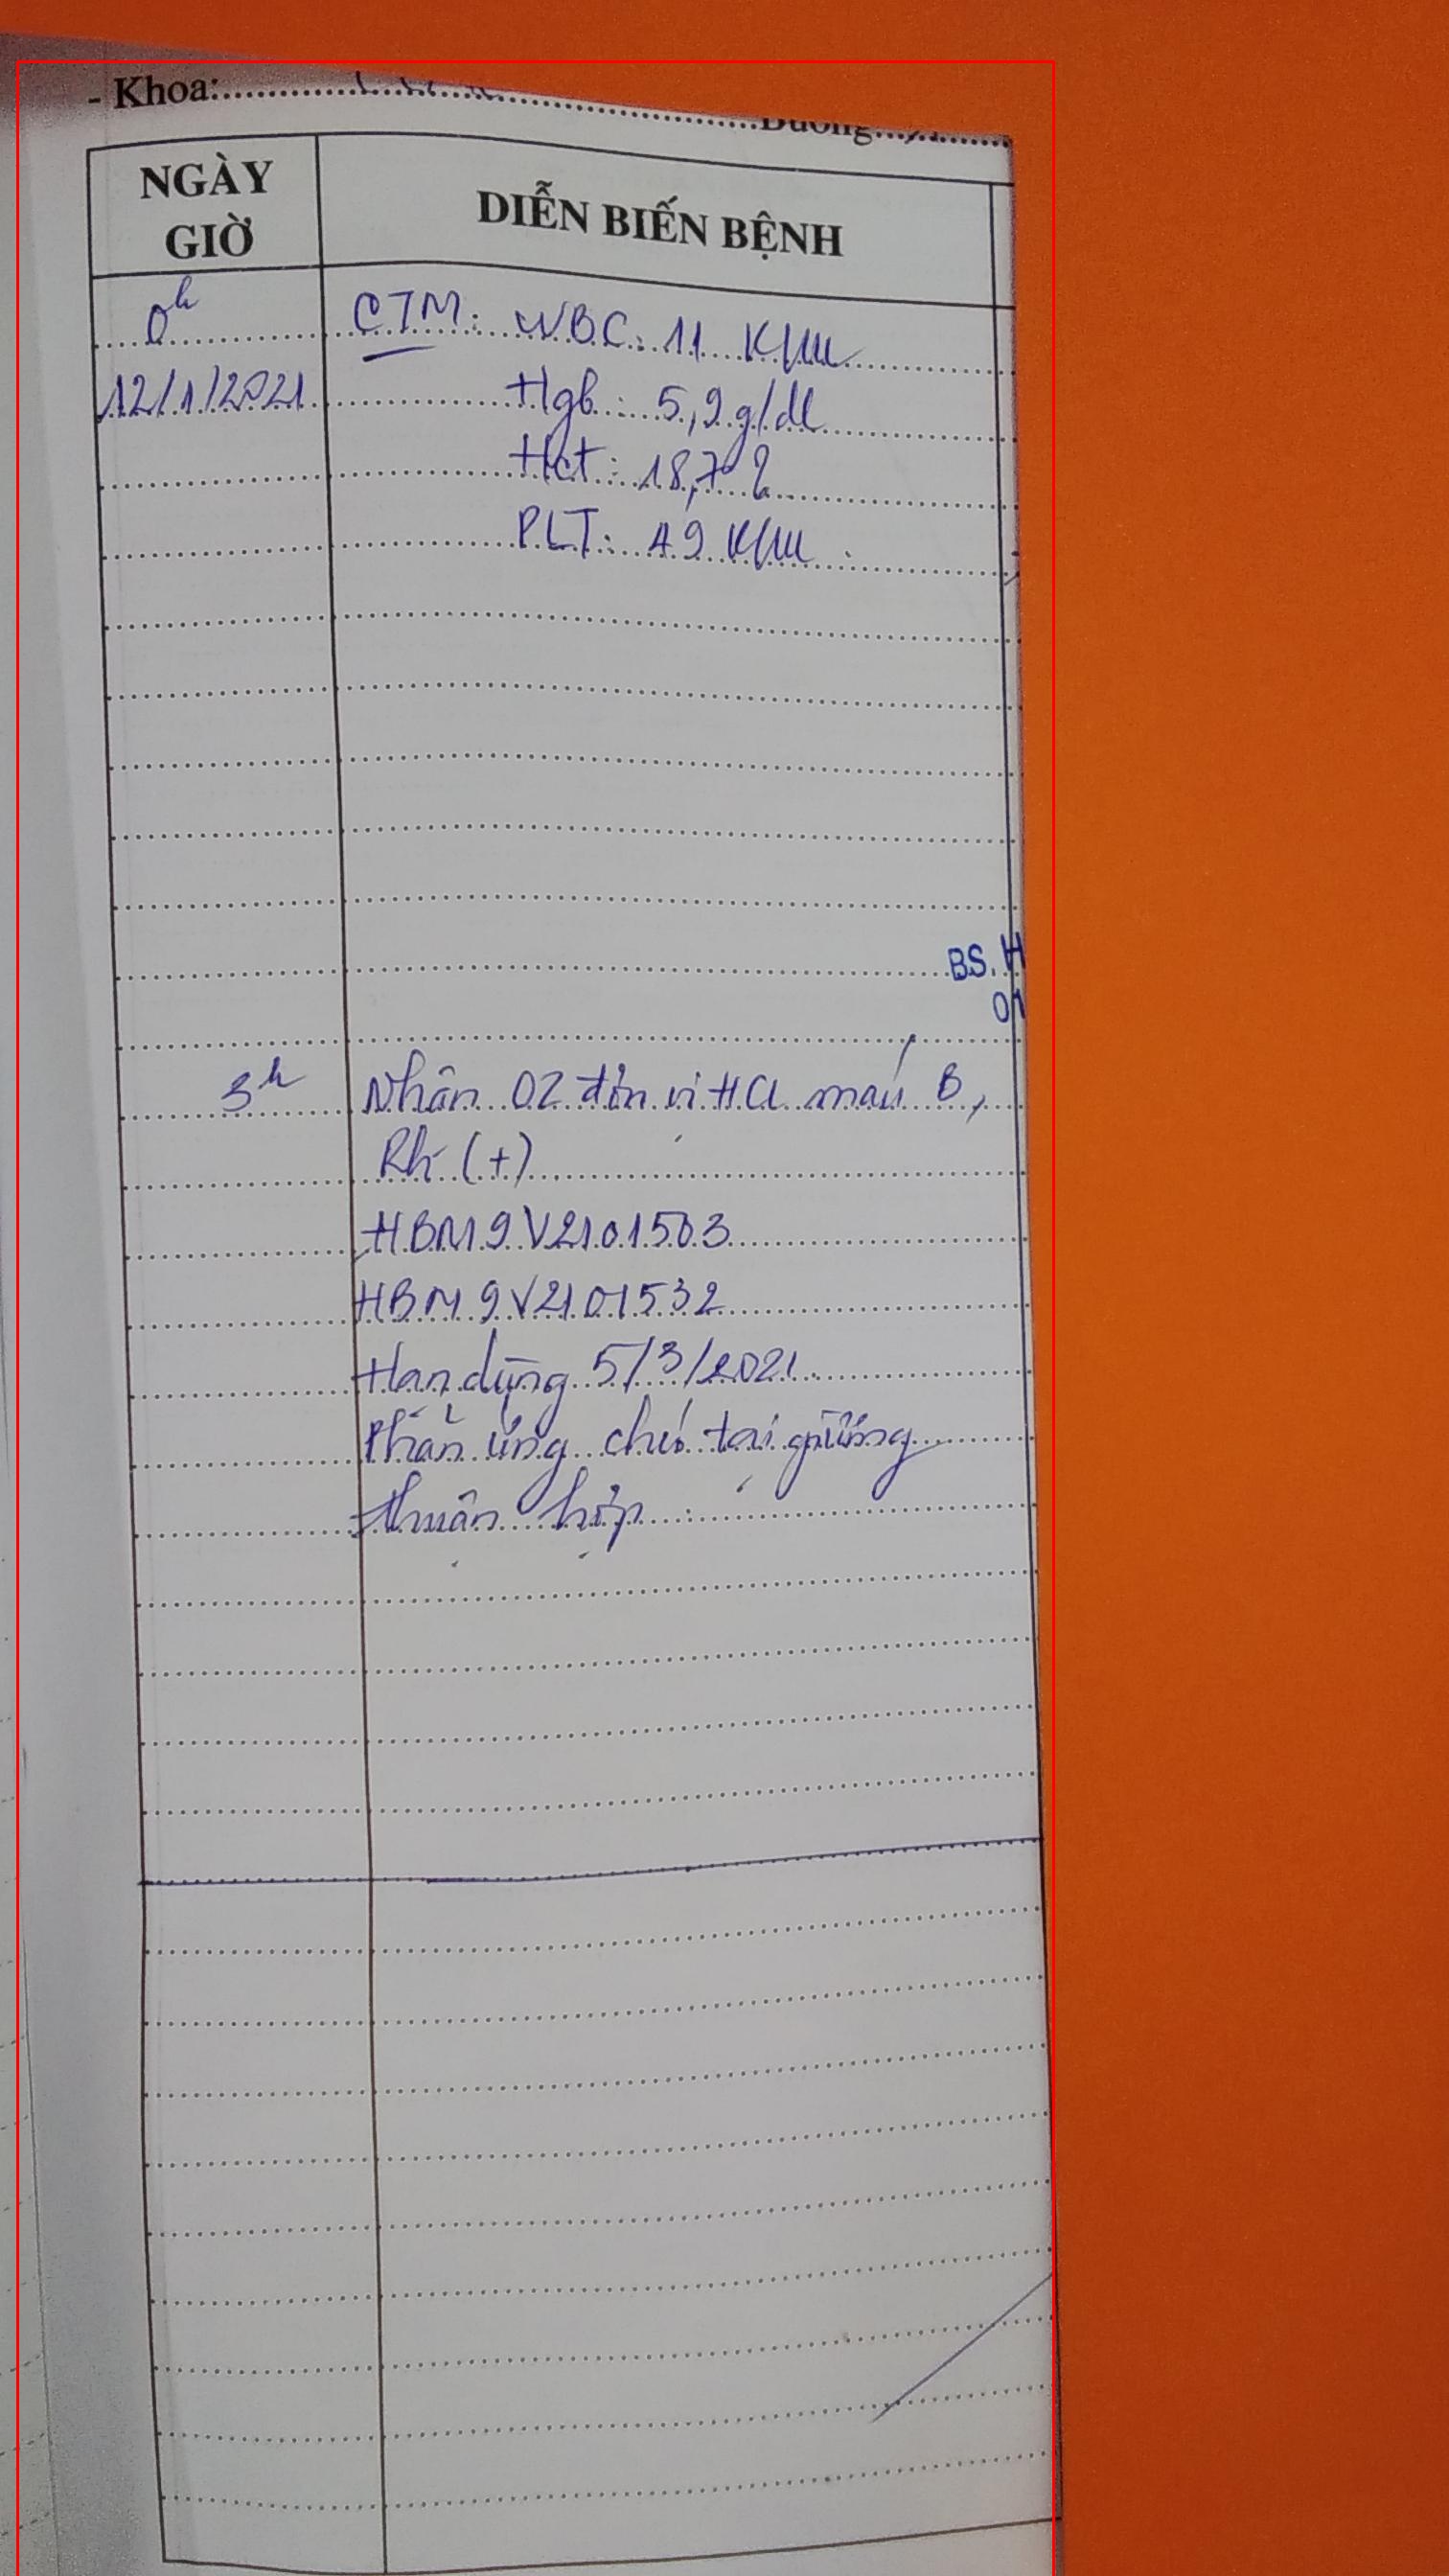 - Khoa:
Buồng
NGÀY GIỜ
DIỄN BIẾN BỆNH
0h
CTM: WBC: 11 K/uL
12/1/2021
Hgb: 5,9 g/dl
Hct: 18,7%
PLT: 49 K/uL
BS. H
01
3h
Nhận 02 đơn vị HCL máu B,
Rh (+)
HBM9V2101503
HBM9V2101532
Hạn dùng 5/3/2021
Phản ứng chéo tại giường
thuận hợp